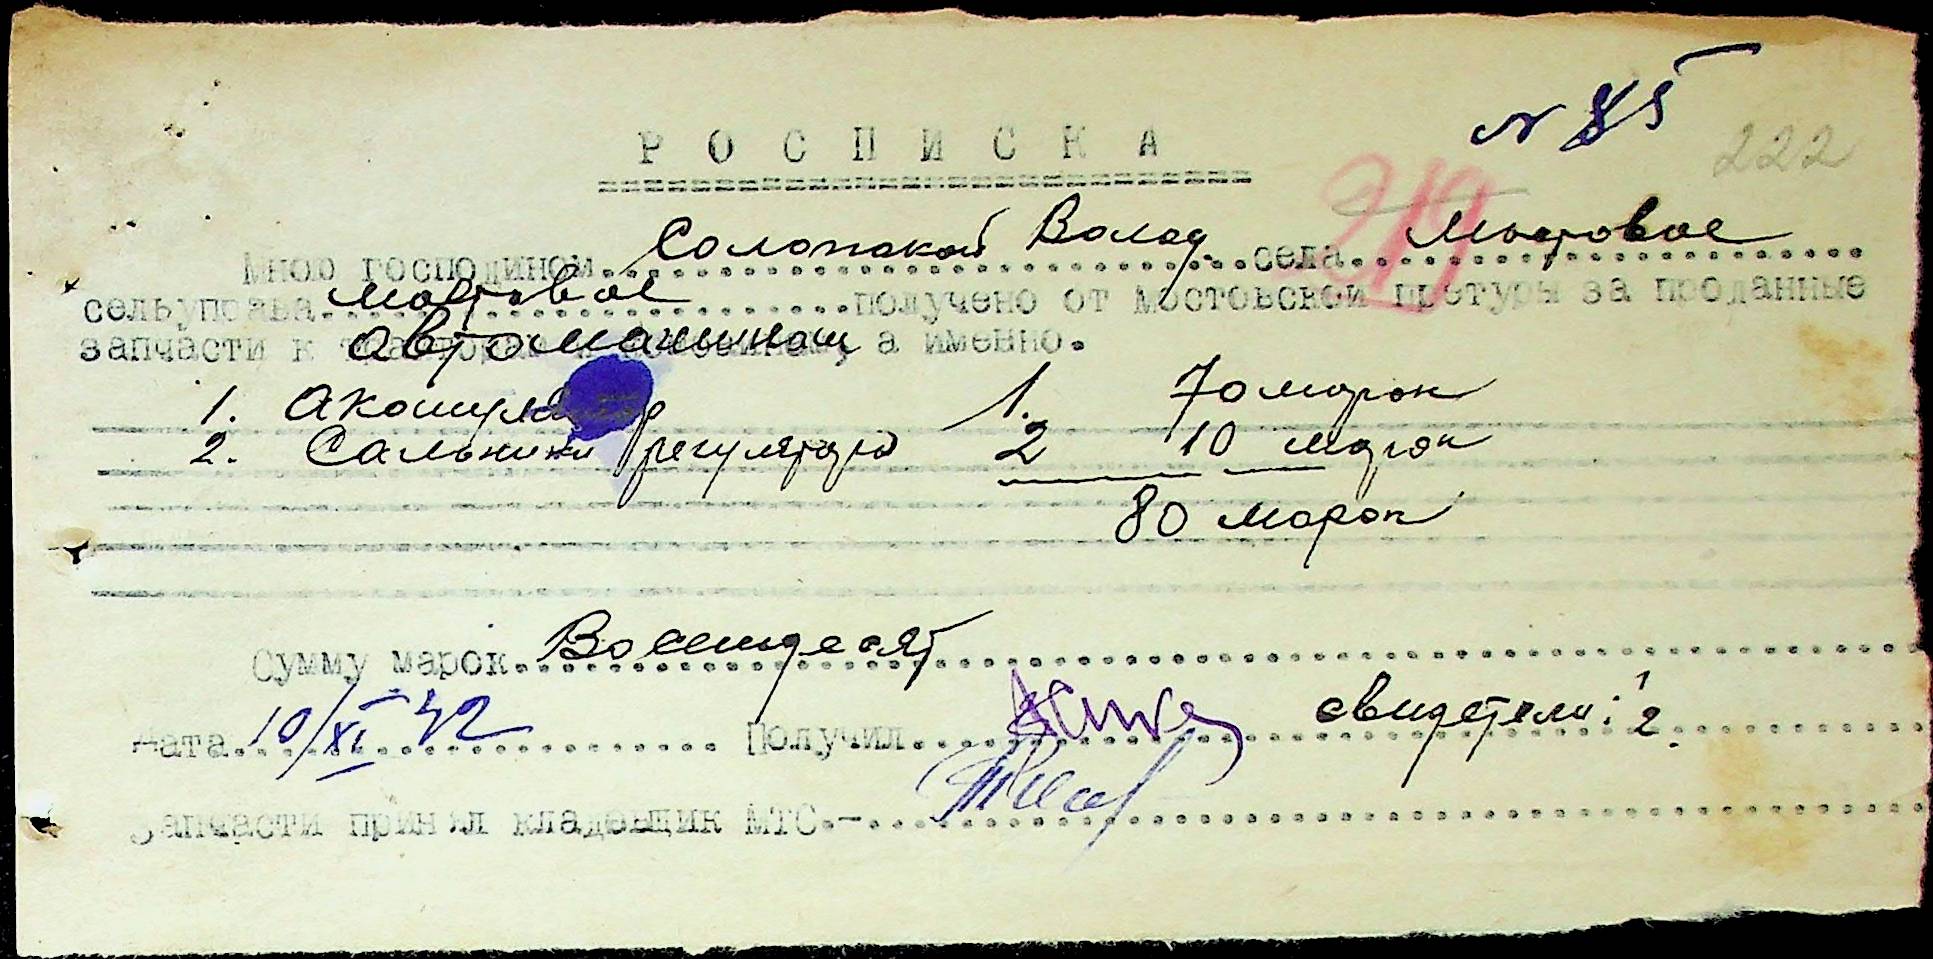 N 85
222
РОСПИСКА
219
Мною господином Солопакой Волод. села Мостовое
сельуправа Мостовое получено от Мостовской претуры за проданные
запчасти к автомашинам а именно.
1. Акомулятор 1. 70 марок
2. Сальники регулятора 2 10 марок
80 марок
Сумму марок Восемдесят
Дата 10/XI 42 Получил свидетели: 1
2.
Запчасти принял кладовщик МТС.-